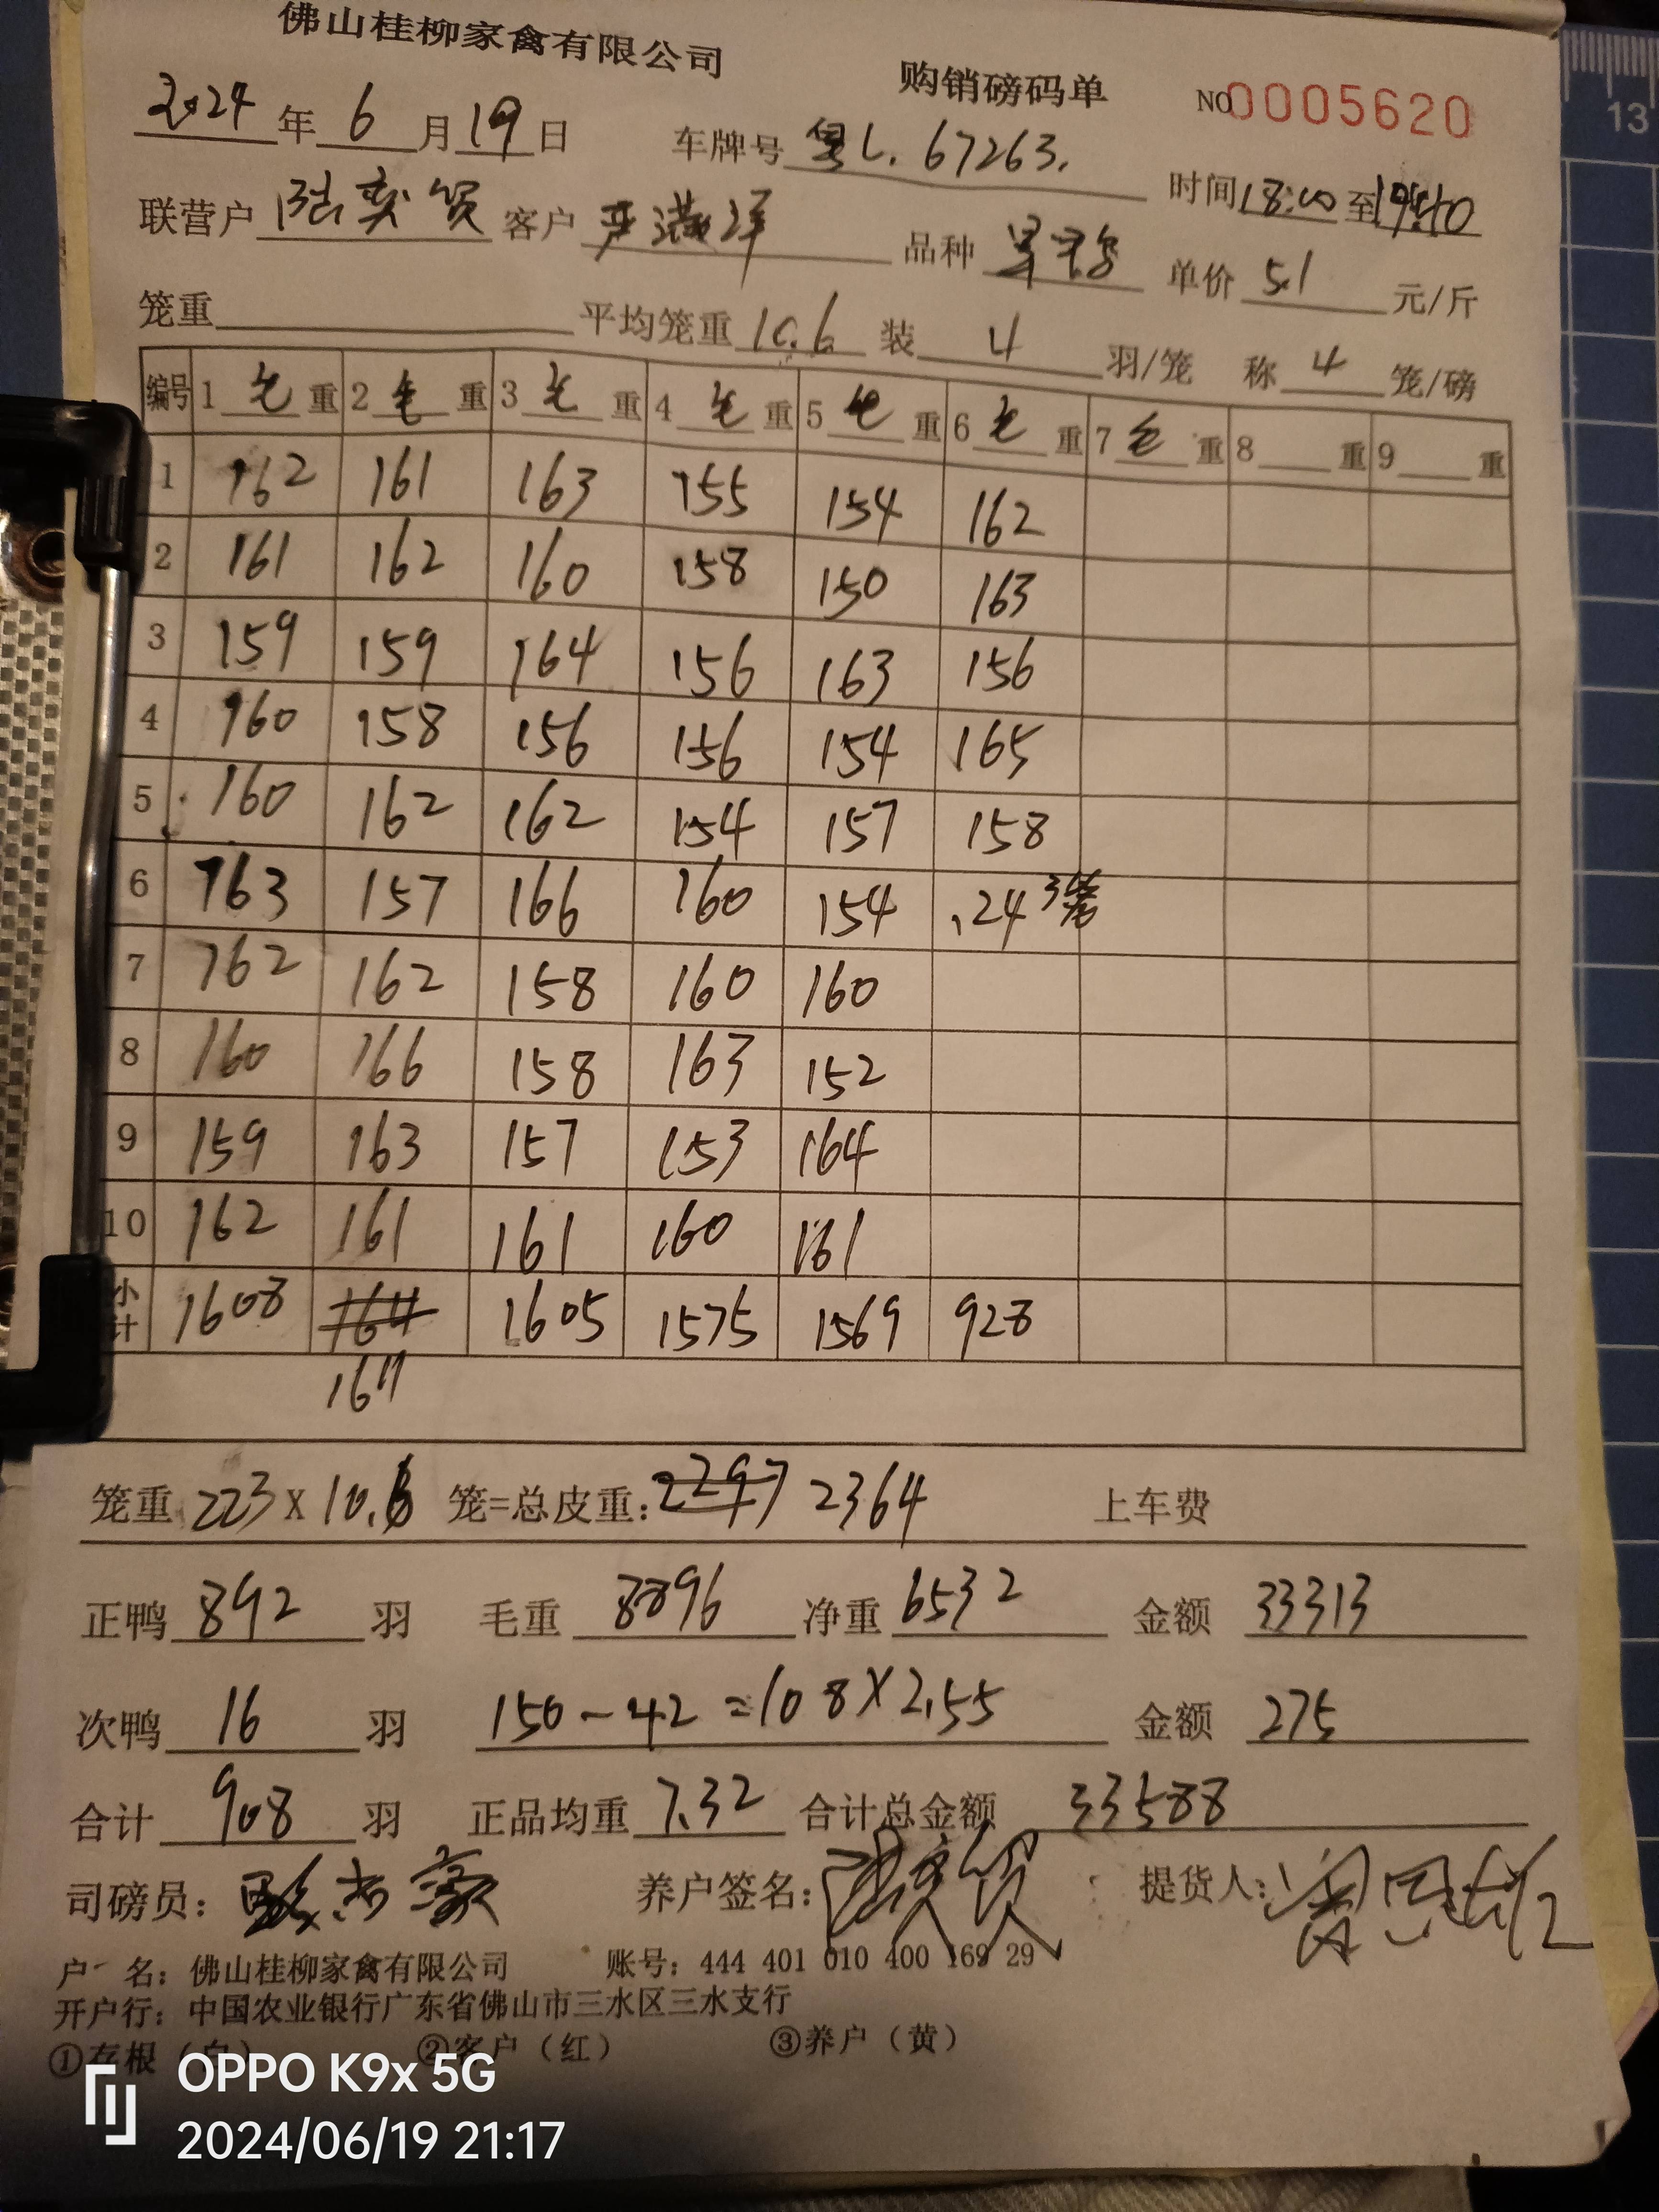 佛山桂柳家禽有限公司
购销磅码单 NO 0005620
2024年6月19日 车牌号 粤L.67263.
联营户 客户 品种 时间18:00至19:40
单价 5.1 元/斤
笼重 平均笼重 10.6 装 4 羽/笼 称 4 笼/磅
编号 1 毛 重 2 毛 重 3 毛 重 4 毛 重 5 毛 重 6 毛 重 7 毛 重 8 重 9 重
1 162 161 163 155 154 162
2 161 162 160 158 150 163
3 159 159 164 156 163 156
4 160 158 156 156 154 165
5 160 162 162 154 157 158
6 163 157 166 160 154 124 3笼
7 162 162 158 160 160
8 160 166 158 163 152
9 159 163 157 153 164
10 162 161 161 160 161
小计 1608 1605 1575 1569 928
1611
笼重 223 x 10.6 笼=总皮重: 2297 2364 上车费
正鸭 892 羽 毛重 8896 净重 6532 金额 33313
次鸭 16 羽 150-42=108X2.55 金额 275
合计 908 羽 正品均重 7.32 合计总金额 33588
司磅员: 养户签名: 提货人:
户 名: 佛山桂柳家禽有限公司 账号: 444 401 010 400 169 29
开户行: 中国农业银行广东省佛山市三水区三水支行
①存根(白) ②客户(红) ③养户(黄)
OPPO K9x 5G
2024/06/19 21:17
13